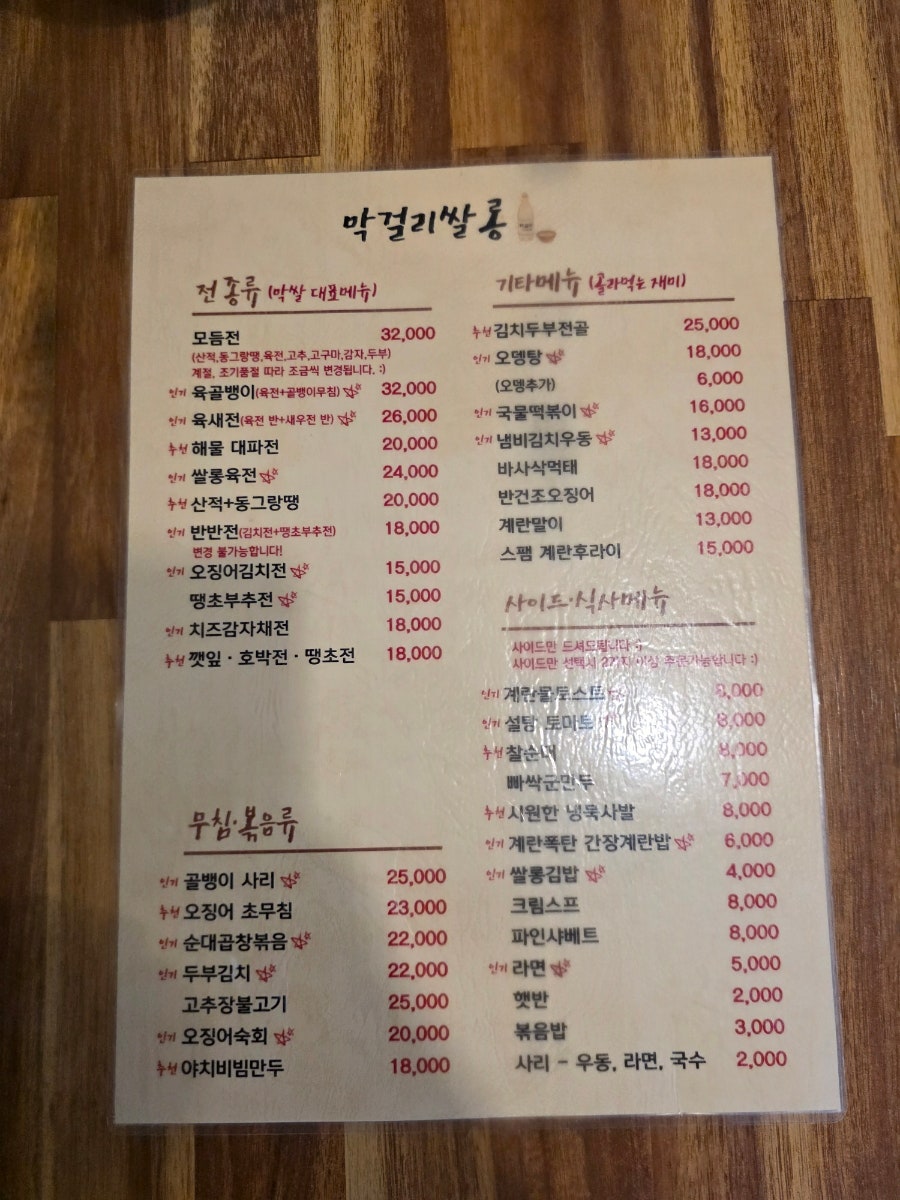 막걸리쌀롱
전 종류 (막쌀 대표메뉴)
모듬전 32,000
(산적,동그랑땡,육전,고추,고구마,감자,두부)
계절, 조기품절 따라 조금씩 변경됩니다. :)
인기 육골뱅이(육전+골뱅이무침) 32,000
인기 육새전(육전 반+새우전 반) 26,000
추천 해물 대파전 20,000
인기 쌀롱육전 24,000
추천 산적+동그랑땡 20,000
인기 반반전(김치전+땡초부추전) 18,000
변경 불가능합니다!
인기 오징어김치전 15,000
땡초부추전 15,000
인기 치즈감자채전 18,000
추천 깻잎·호박전·땡초전 18,000
무침·볶음류
인기 골뱅이 사리 25,000
추천 오징어 초무침 23,000
인기 순대곱창볶음 22,000
인기 두부김치 22,000
고추장불고기 25,000
인기 오징어숙회 20,000
추천 야치비빔만두 18,000
기타메뉴 (골라먹는 재미)
추천 김치두부전골 25,000
인기 오뎅탕 18,000
(오뎅추가) 6,000
인기 국물떡볶이 16,000
인기 냄비김치우동 13,000
바사삭먹태 18,000
반건조오징어 18,000
계란말이 13,000
스팸 계란후라이 15,000
사이드·식사메뉴
사이드만 드셔도됩니다 :)
사이드만 선택시 2가지 이상 주문가능합니다 :)
인기 계란물토스트 8,000
인기 설탕 토마토 8,000
추천 찰순대 8,000
빠싹군만두 7,000
추천 시원한 냉묵사발 8,000
인기 계란폭탄 간장계란밥 6,000
인기 쌀롱김밥 4,000
크림스프 8,000
파인샤베트 8,000
인기 라면 5,000
햇반 2,000
볶음밥 3,000
사리 - 우동, 라면, 국수 2,000